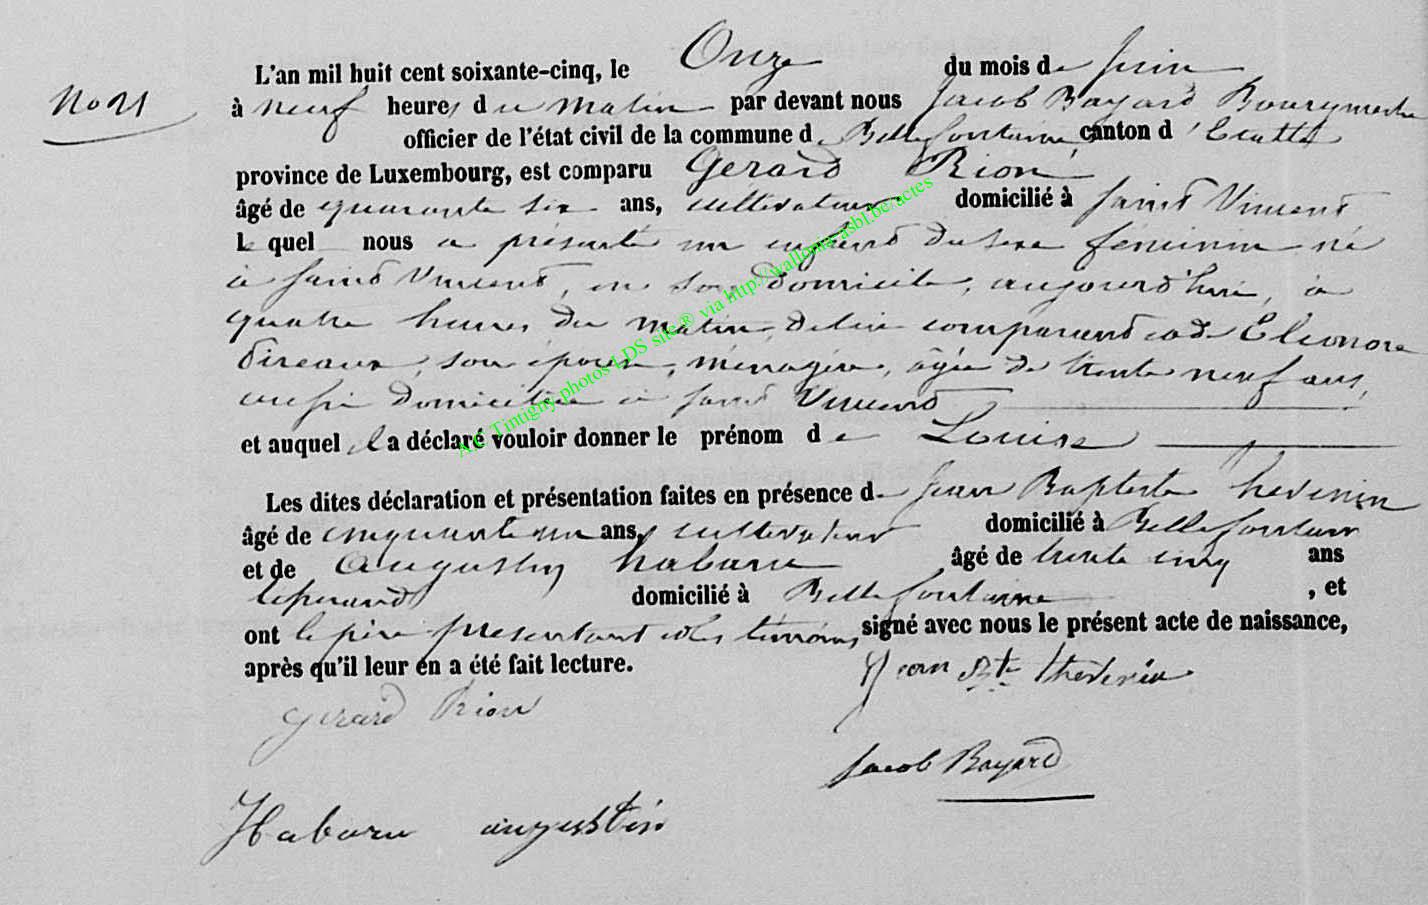 L'an mil huit cent soixante-cinq, le Onze du mois de Juin
No 21
à neuf heures du matin par devant nous Jacob Bayard Bourgmestre
officier de l'état civil de la commune de Bellefontaine, canton d'Etalle
province de Luxembourg, est comparu Gerard Rion
âgé de quarante six ans, cultivateur domicilié à Saint Vincent
Le quel nous a présenté un enfant du sexe féminin né
à Saint Vincent, en son domicile, aujourd'hui, à
quatre heures du matin, de lui comparant et de Eléonore
son épouse, ménagère, âgée de trente neuf ans,
aussi domiciliée à Saint Vincent
et auquel il a déclaré vouloir donner le prénom de Louise
Les dites déclaration et présentation faites en présence de Jean Baptiste Thevenin
âgé de cinquante un ans, cultivateur domicilié à Bellefontaine
et de Augustin Habaru âgé de trente cinq ans
domicilié à Bellefontaine , et
ont le père présentant et les témoins signé avec nous le présent acte de naissance,
après qu'il leur en a été fait lecture.
Jean Bte Thevenin
Gerard Rion
Jacob Bayard
Habaru augustin
A.C Tintigny photos LDS site® via http://wallonia-asbl.be/actes